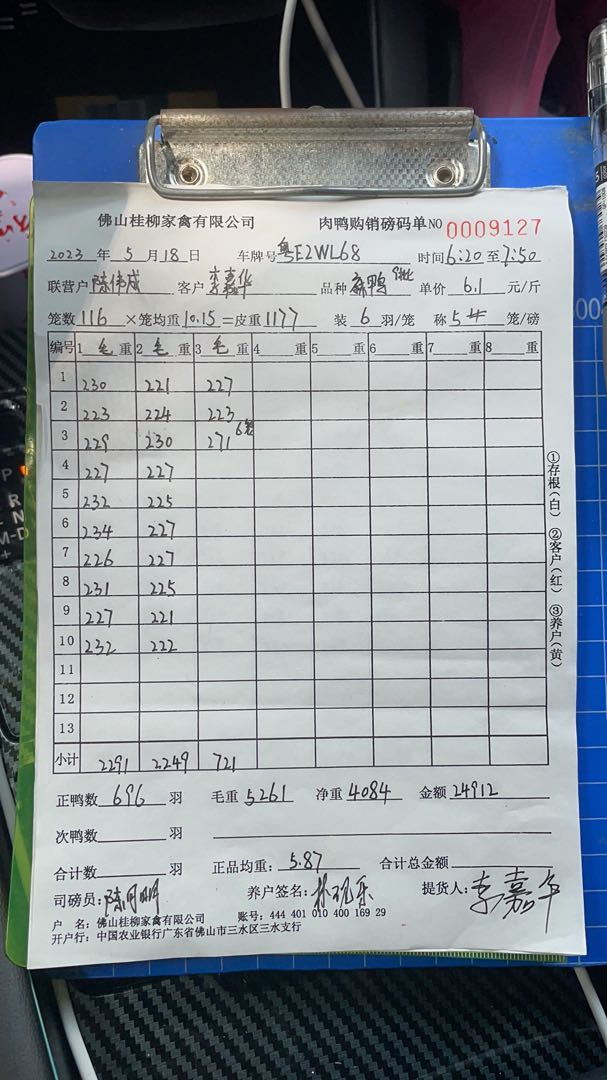 佛山桂柳家禽有限公司 肉鸭购销磅码单 NO 0009127
2023 年 5 月 18 日 车牌号 粤E2WL68 时间 6:20 至 7:50
联营户 陈伟成 客户 李嘉华 品种 麻鸭 单价 6.1 元/斤
笼数 116 ×笼均重 10.15 =皮重 1177 装 6 羽/笼 称 5 笼/磅
编号 1 毛 重 2 毛 重 3 毛 重 4 重 5 重 6 重 7 重 8 重
1 230 221 227
2 223 224 223
3 229 230 271 6笼
4 227 227
5 232 225
6 234 227
7 226 227
8 231 225
9 227 221
10 232 222
11
12
13
小计 2291 2249 721
正鸭数 696 羽 毛重 5261 净重 4084 金额 24912
次鸭数 羽
合计数 羽 正品均重: 5.87 合计总金额
司磅员: 陈 养户签名: 提货人: 李嘉华
户 名: 佛山桂柳家禽有限公司 账号: 444 401 010 400 169 29
开户行: 中国农业银行广东省佛山市三水区三水支行
①存根(白) ②客户(红) ③养户(黄)